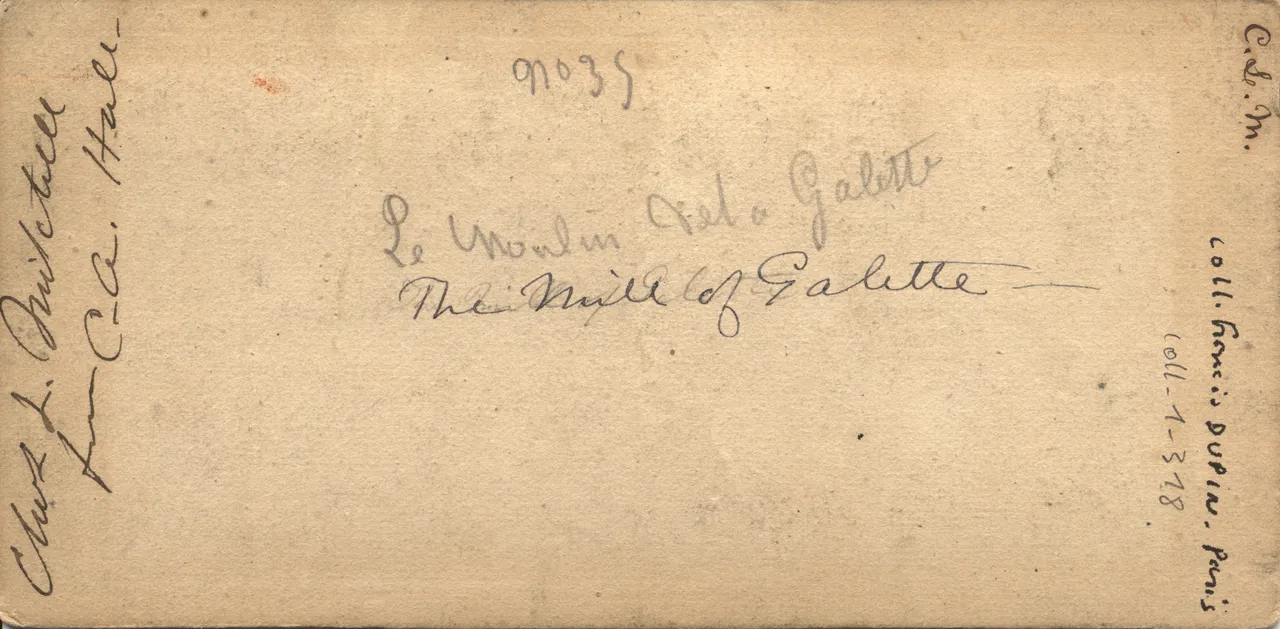 Chas L. Mitchell
from C. A. Hall.
No 35
Le Moulin de la Galette
The Mill of Galette —
C. L. M.
coll. Francis DUPIN. Paris
coll-1-318